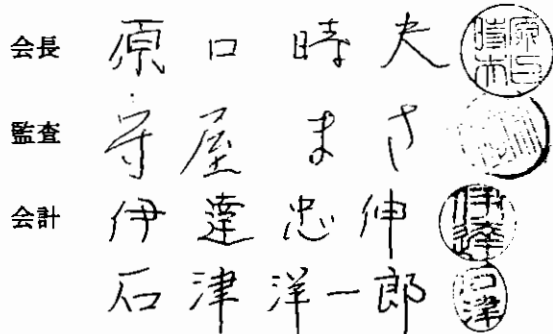 会長 原口時夫
監査 守屋まさ
会計 伊達忠伸 伊達
石津洋一郎 石津